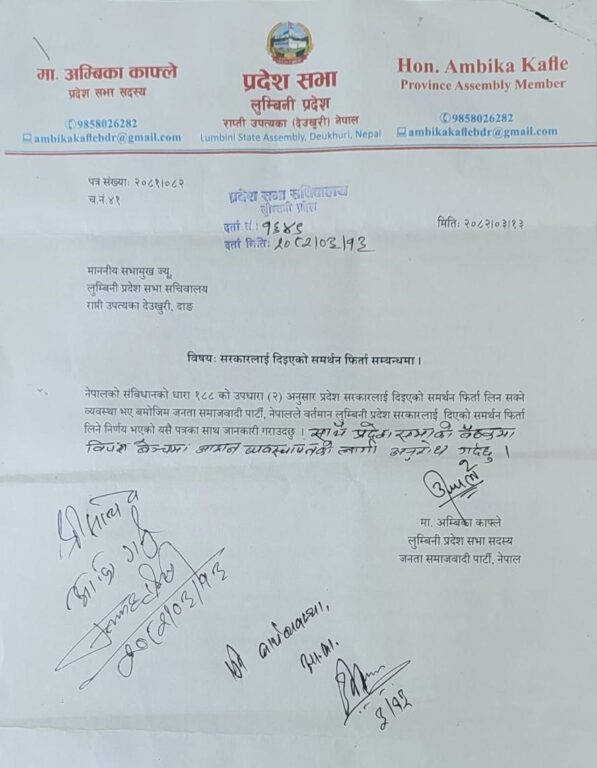 मा. अम्बिका काफ्ले
प्रदेश सभा सदस्य
✆9858026282
ambikakaflebdr@gmail.com
प्रदेश सभा
लुम्बिनी प्रदेश
राप्ती उपत्यका (देउखुरी) नेपाल
Lumbini State Assembly, Deukhuri, Nepal
Hon. Ambika Kafle
Province Assembly Member
✆9858026282
ambikakaflebdr@gmail.com
पत्र संख्याः २०८१/०८२
च.नं.४१
प्रदेश सभा सचिवालय
लुम्बिनी प्रदेश
दर्ता नं.: १६४९
दर्ता मिति: २०८२/०३/१३
मितिः २०८२/०३/१३
माननीय सभामुख ज्यू,
लुम्बिनी प्रदेश सभा सचिवालय
राप्ती उपत्यका देउखुरी, दाङ
विषयः सरकारलाई दिइएको समर्थन फिर्ता सम्बन्धमा ।
नेपालको संविधानको धारा १८८ को उपधारा (२) अनुसार प्रदेश सरकारलाई दिइएको समर्थन फिर्ता लिन सक्ने
व्यवस्था भए बमोजिम जनता समाजवादी पार्टी, नेपालले वर्तमान लुम्बिनी प्रदेश सरकारलाई दिएको समर्थन फिर्ता
लिने निर्णय भएको यसै पत्रका साथ जानकारी गराउदछु । साथै प्रदेश सभाको बैठकमा
विपक्ष बेञ्चमा आसन व्यवस्थापनको लागी अनुरोध गर्दछु ।
मा. अम्बिका काफ्ले
लुम्बिनी प्रदेश सभा सदस्य
जनता समाजवादी पार्टी, नेपाल
श्री सचिव
२०८२/०३/१३
श्री कार्यव्यवस्था,
३/१३